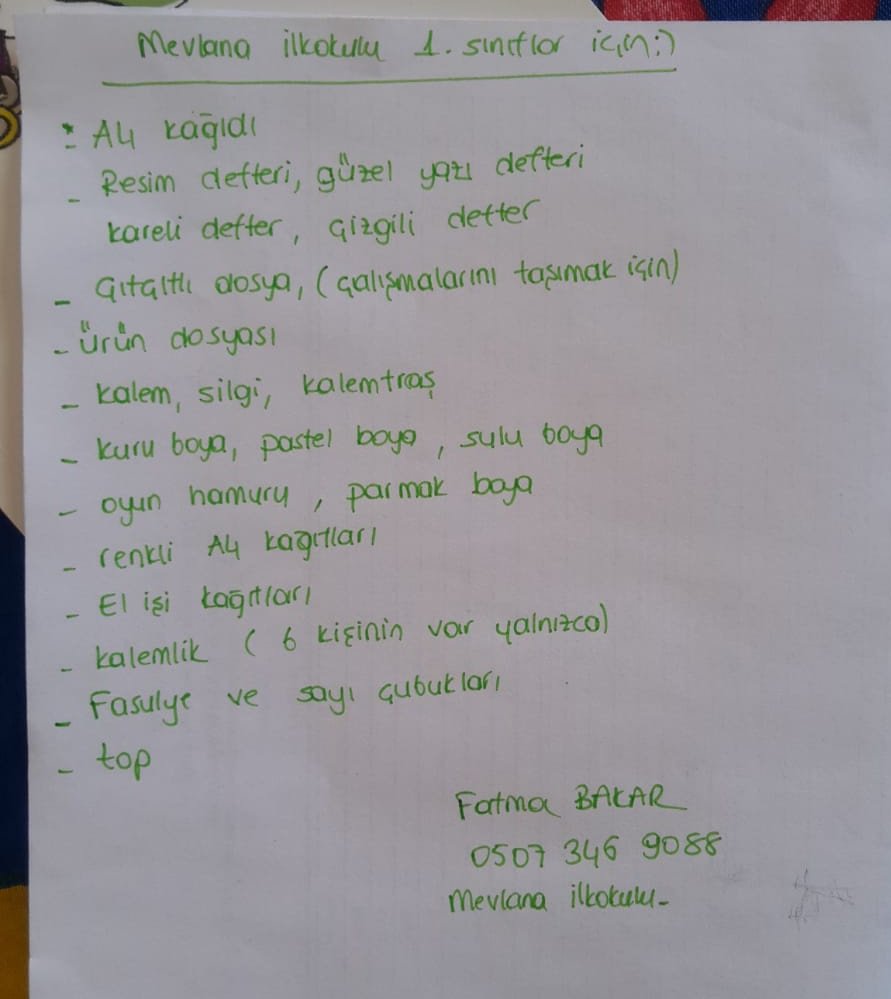 Mevlana ilkokulu 1. sınıflar için:)
- A4 kağıdı
- Resim defteri, güzel yazı defteri
kareli defter, çizgili defter
- Çıtçıtlı dosya, (çalışmalarını taşımak için)
- Ürün dosyası
- kalem, silgi, kalemtraş
- kuru boya, pastel boya, sulu boya
- oyun hamuru, parmak boya
- renkli A4 kağıtları
- El işi kağıtları
- kalemlik (6 kişinin var yalnızca)
- Fasulye ve sayı çubukları
- top
Fatma BAKAR
0507 346 9088
Mevlana ilkokulu-